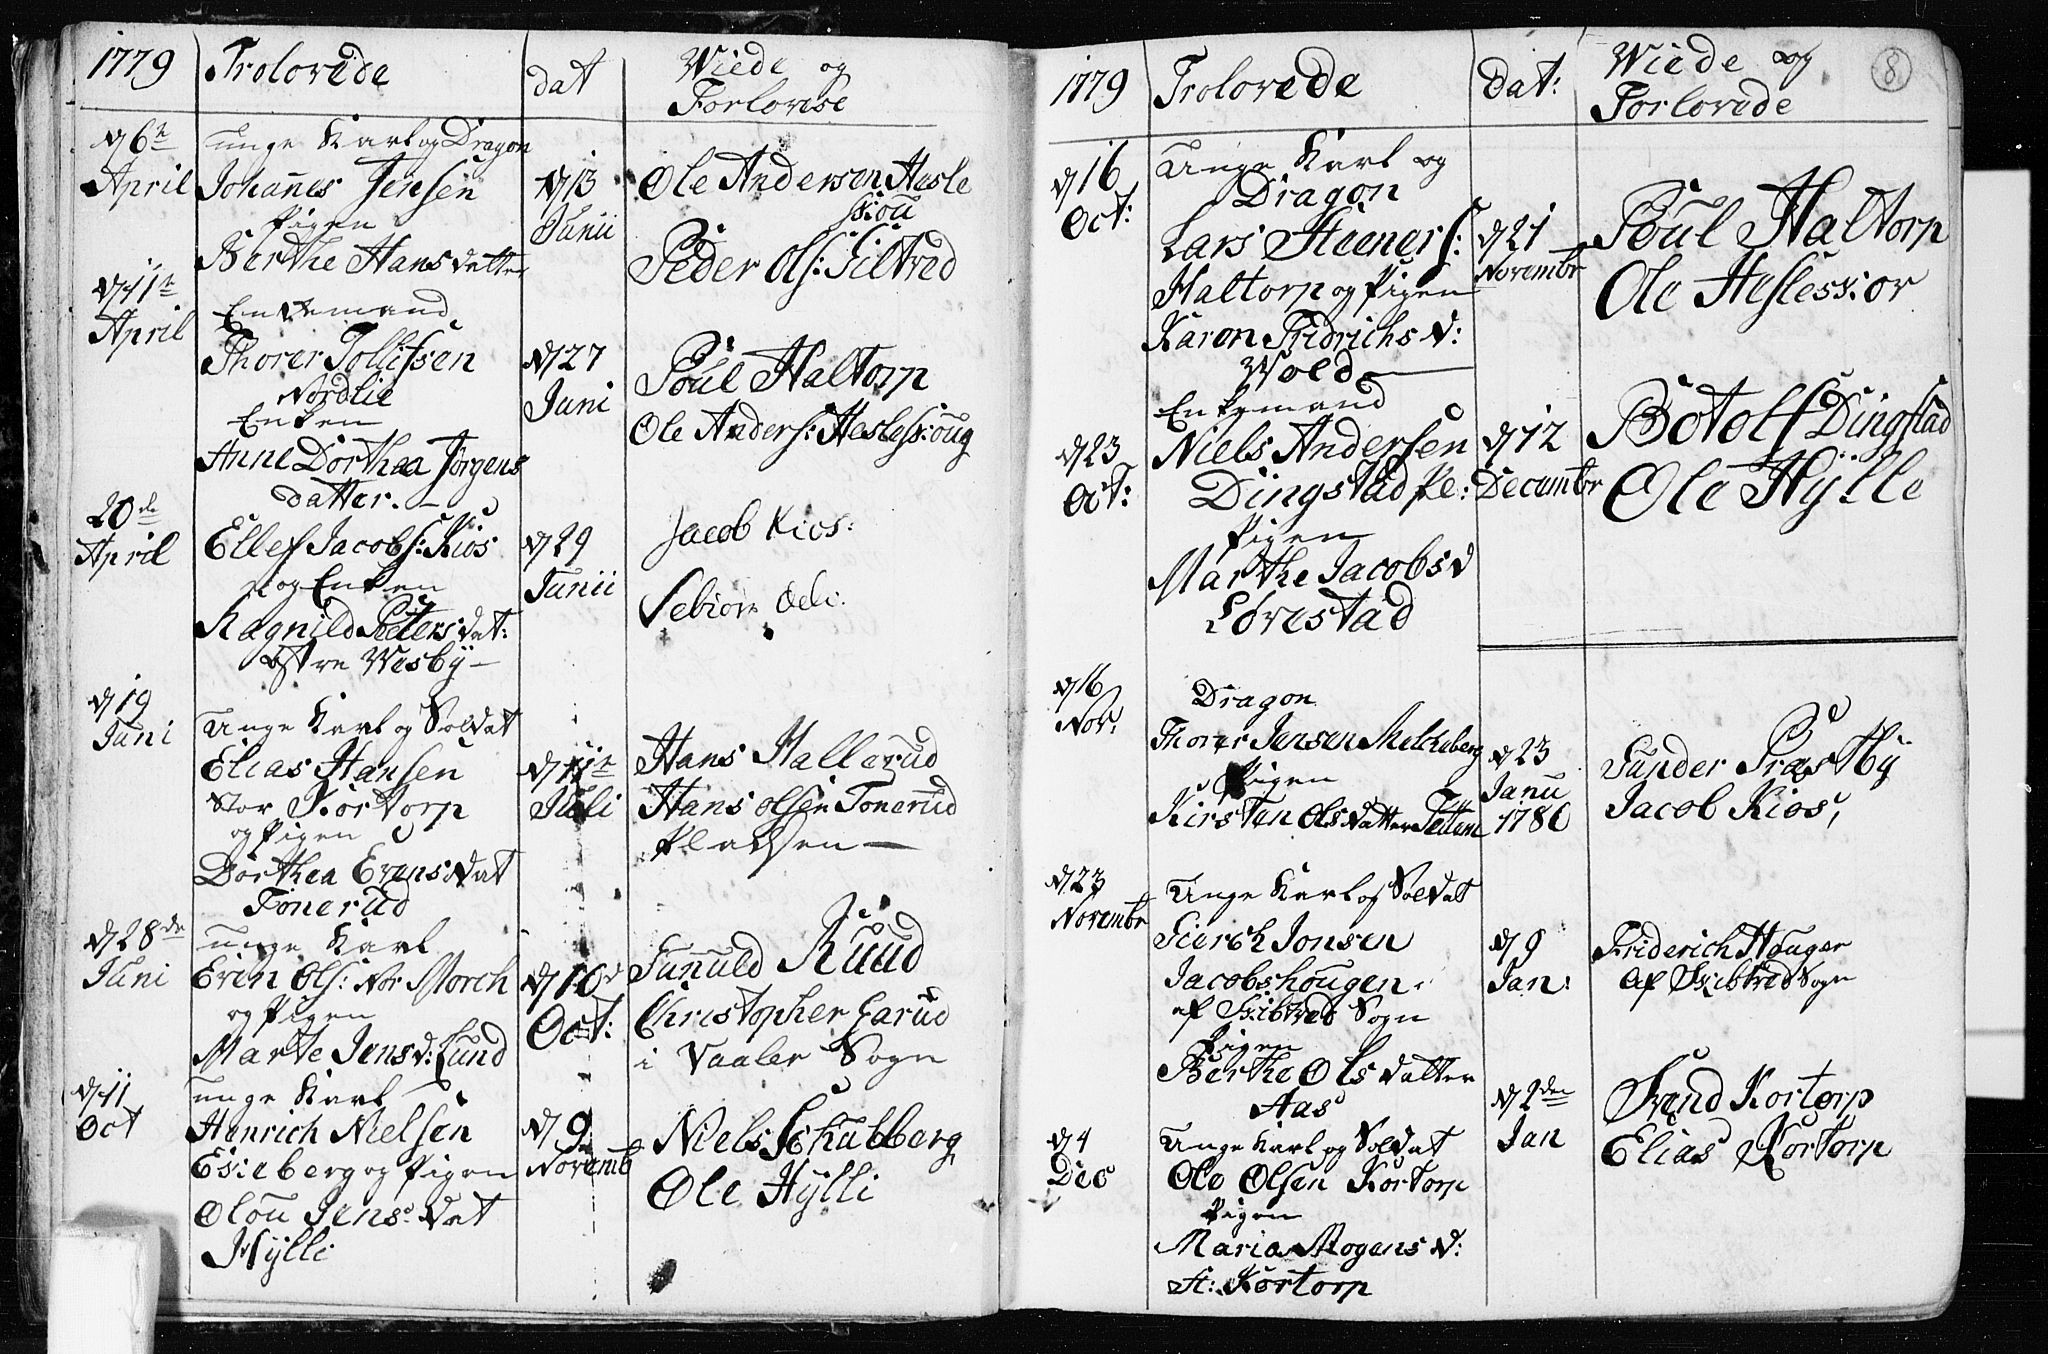 1779
Trolovede
dat
Wiede og
Forlovese
d 6te
April
unge Karl og Dragon
Johannes Jensen
Pigen
Berthe Hansdatter
d 13
Junii
Ole Andersen Hesle
skou
Peder Ols: Giltved
d 11te
April
Enkemand
Thorer Tollifsen
Nordlie
Enken
Anne Dorthea Jørgens
datter.
d 27
Juni
Poul Haltorp
Ole Anders: Hesleskoug
20de
April
Ellef Jacobs: Kios
og Enken
Ragnild Peters dat:
østre Wesby
d 29
Junii
Jacob Kios:
d 19
Juni
Unge Karl og Soldat
Elias Hansen
Stor Kortorp
og Pigen
Dorthea Evens dat
Tonerud
d 11te
Juli
Hans Hallerud
Hans olsen Tonerud
Pladsen
d 28de
Juni
unge Karl
Even Ols: Nor Morch
og Pigen
Marte Jens d: Lund
d 10de
Oct:
Gunuld Ruud
Christopher Garud
i Vaaler Sogn
d 11
Oct
unge Karl
Henrich Nielsen
Eskeberg og Pigen
Olou Jens: dat
Hylli
d 9
Novemb
Niels Schubberg
Ole Hylli
8
1779
Trolovede
dat:
Wiede og
Forlovede
d 16
Oct:
Unge Karl og
Dragon
Lars Steners:
Haltorp og Pigen
Karen Fridrichs d:
Wold
d 21
Novembr
Poul Haltorp
Ole Hesleskov
d 23
Oct:
Enkemand
Niels Andersen
Dingstad
Pigen
Marthe Jacobs d
Lövestad
d 12
Decembr
Botolf Dingstad
Ole Hylle
d 16
Nov:
Dragon
Thorer Jensen Melcheberg
Pigen
Kirsten Olsdatter
d 23
Janu
1780
Gunder Præstby
Jacob Kios,
d 23
Novembr
Unge Karl og Soldat
Sierch Jonsen
Jacobshougen
af Skibtved Sogn
Pigen
Berthe Olsdatter
Aas
d 9
Jan:
Friderich Houger
Af Skibtved Sogn
d 4
Dec
Unge Karl og Soldat
Ole Olsen Kortorp
Pigen
Maria Mogens d:
St: Kortorp
d 2den
Jan
Svend Kortorp
Elias Kortorp